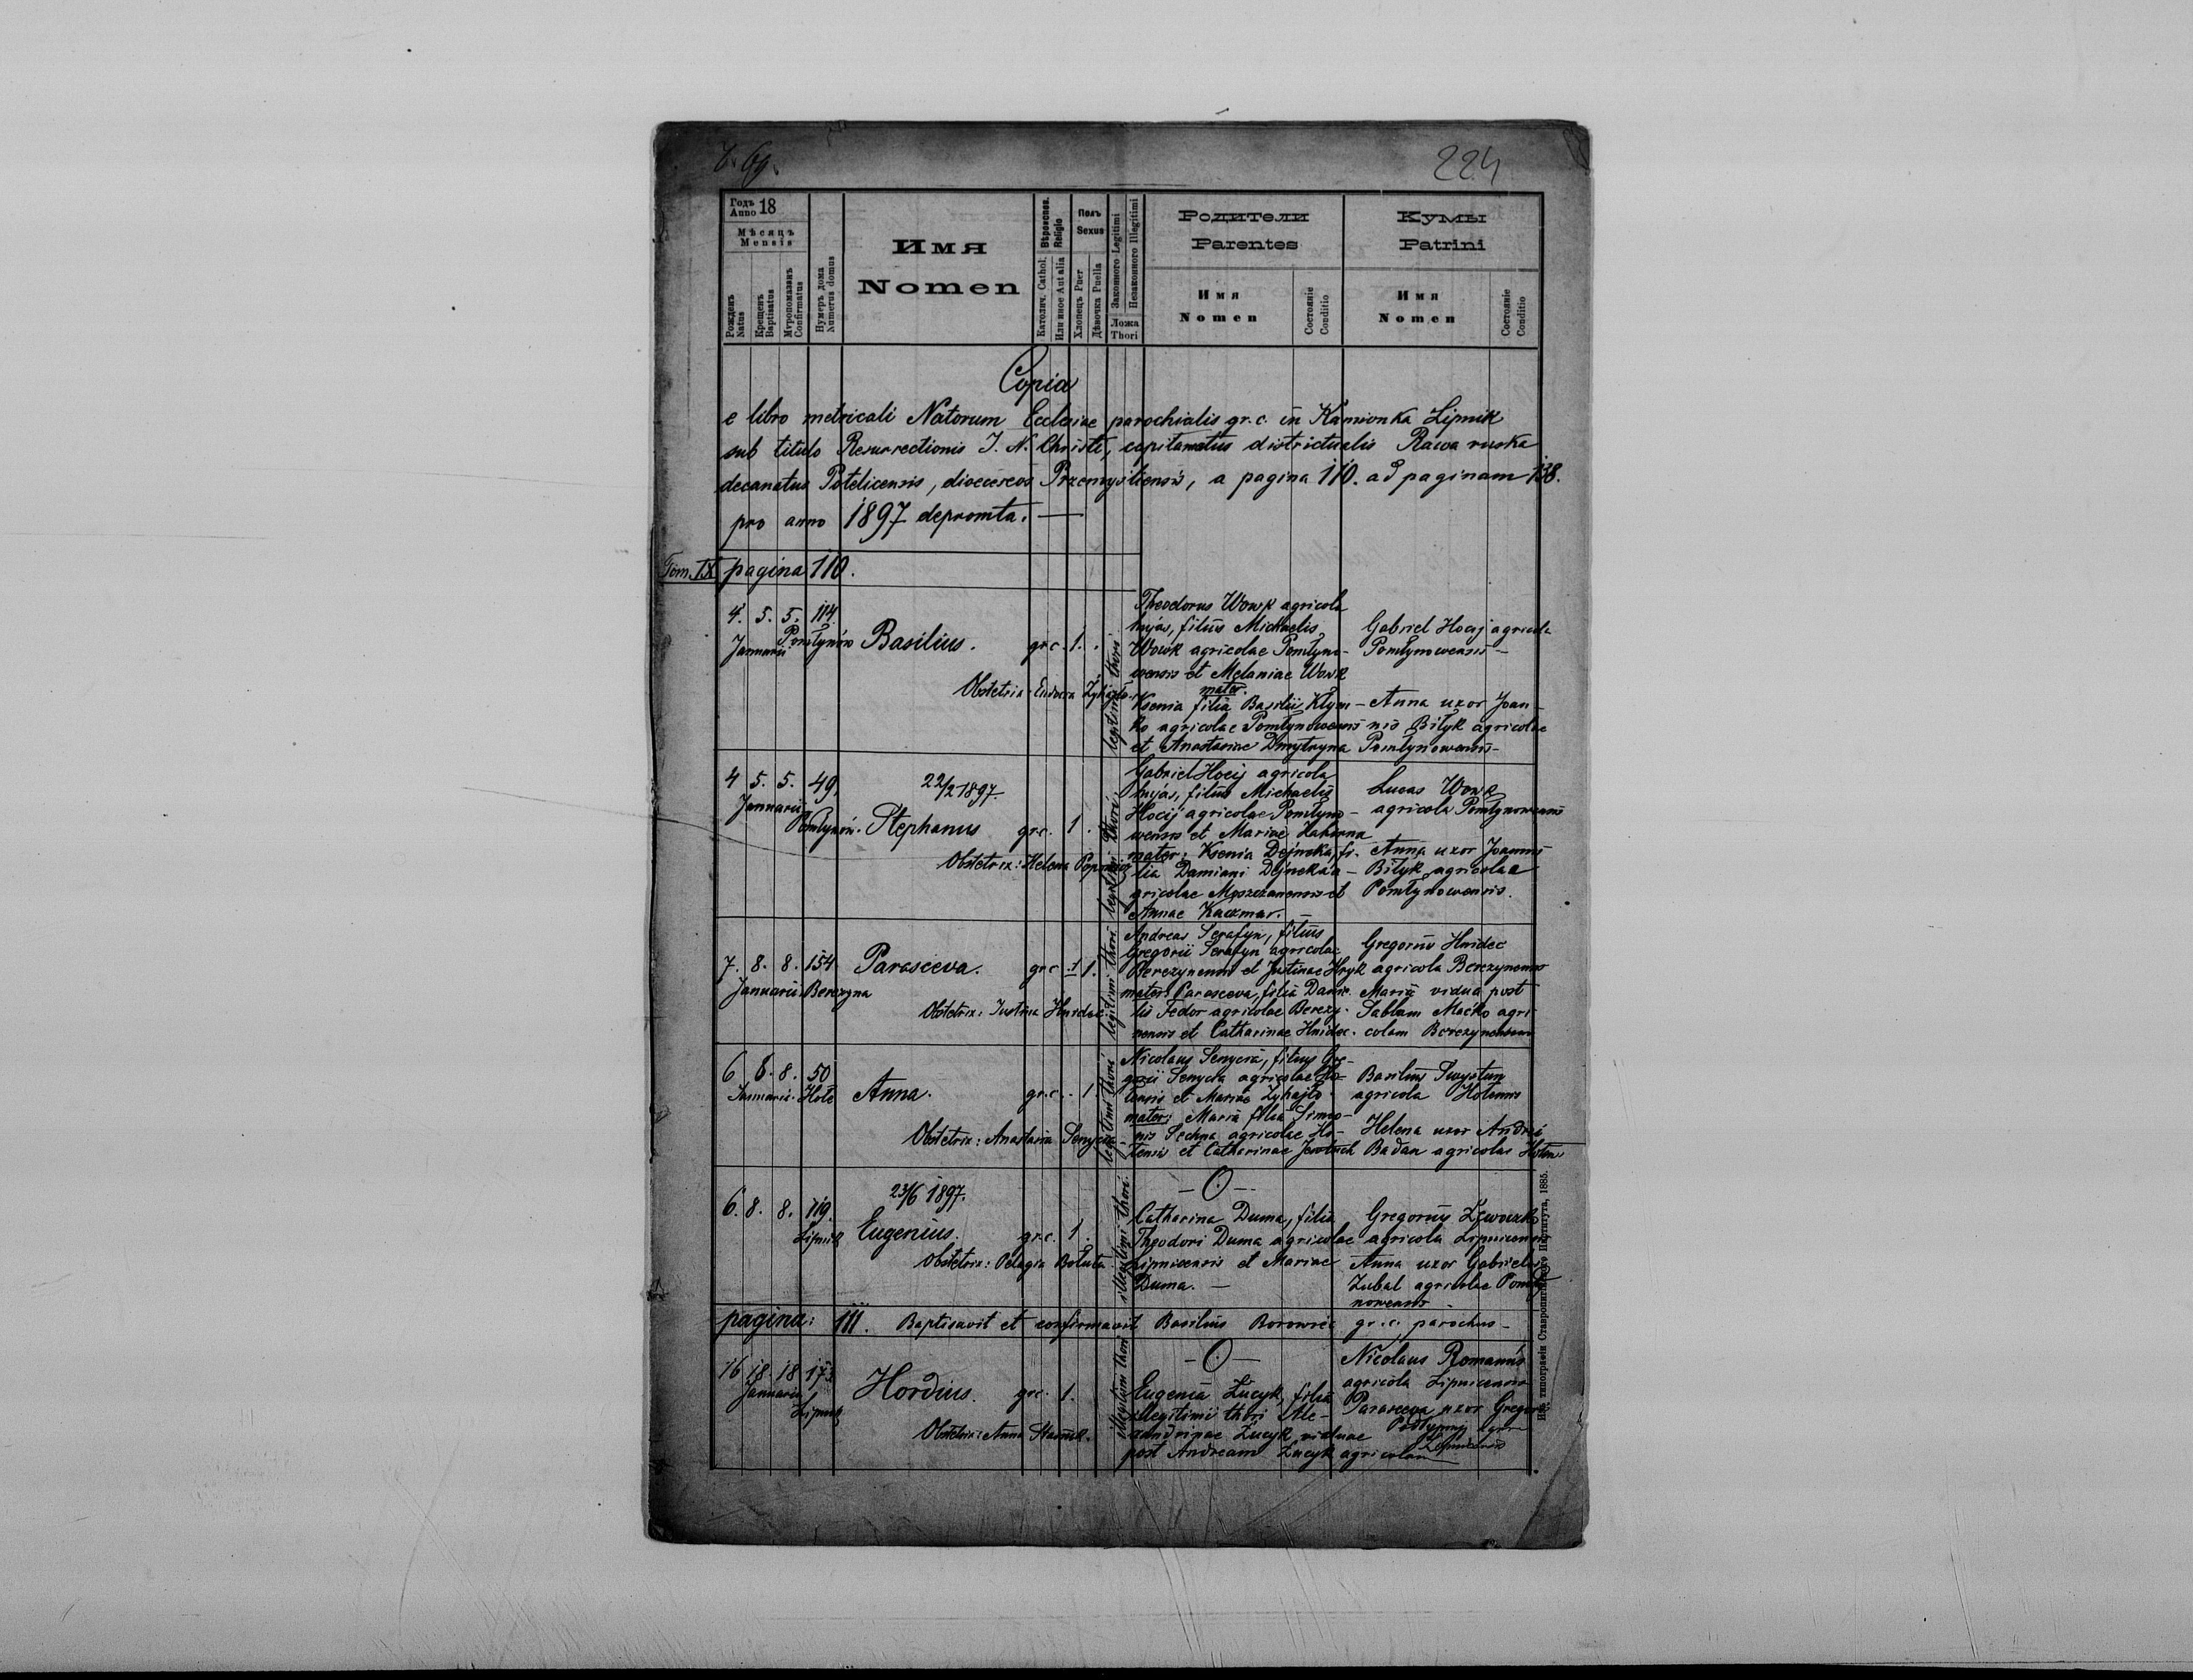 224
Годъ Anno 18
Мѣсяцъ
Mensis
Рожденъ Natus
Крещенъ Baptisatus
Мѵропомазанъ Confirmatus
Нумеръ дома Numerus domus
Имя
Nomen
Вѣроиспов. Religio
Католич. Cathol.
Или иное Aut alia
Полъ
Sexus
Хлопецъ Puer
Дѣвочка Puella
Законного Legitimi
Незаконного Illegitimi
Ложа
Thori
Родители
Parentes
Имя
Nomen
Состояніе Conditio
Кумы
Patrini
Имя
Nomen
Состояніе Conditio
Copia
e libro metricali Natorum Ecclesiae parochialis gr. c. in Kamionka Lipnik
sub titulo Resurrectionis J. N. Christi, capitanatus districtualis Rawa ruska
decanatus Potelicensis, dioeceseos Przemysliensis, a pagina 110. ad paginam 138.
pro anno 1897 depromta. —
Tom. IX pagina 110.
4. 5. 5. 114
Januarii Pomłynów
Basilius. gr.c. 1.
Obstetrix:
legitimi thori
Theodorus Wowk agricola
hujas, filius Michaelis
Wowk agricolae Pomłyno-
wensis et Melaniae Wowk
mater.
Ksenia filia Basilii Kłym-
ko agricolae Pomłynowensis
et Anastasiae Dmytryna
Gabriel Hocij agricola
Pomłynowensis —
Anna uxor Joan-
nis Biłyk agricolae
Pomłynowensis —
4 5. 5. 49.
Januarii
Pomłynów.
22/2 1897.
Stephanus gr.c. 1.
Obstetrix: Helena
legitimi thori
Gabriel Hocij agricola
hujas, filius Michaelis
Hocij agricolae Pomłyno-
wensis et Mariae
mater: Ksenia Dejneka, fi-
lia Damiani Dejneka a-
gricolae et
Annae Kaczmar. —
Lucas Wowk
agricola Pomłynowensis
Anna uxor Joannis
Biłyk agricolae
Pomłynowensis.
7. 8. 8. 154
Januarii Berezyna
Parasceva. gr.c. 1.
Obstetrix: Justina Hnidec
legitimi thori
Andreas Serafyn, filius
Gregorii Serafyn agricolae
Berezynensis et Justinae Hryk
mater: Parasceva, filia Danie-
lis Fedor agricolae Berezy-
nensis et Catharinae Hnidec.
Gregorius Hnidec
agricola Berezynensis
Maria vidua post
Maćko agri-
colam Berezynensem
6 8. 8. 50
Januarii. Hołe
Anna. gr.c. 1.
Obstetrix: Anastasia
legitimi thori
Nicolaus Senycia, filius Gre-
gorii Senycia agricolae Ho-
lensis et Mariae Zyhajło
mater: Maria filia Simeo-
nis Sechna agricolae Ho-
lensis et Catharinae
Basilius Swystun
agricola Holensis
Helena uxor Andrei
Badan agricolae Holen.
6. 8. 8. 119.
Lipnik
23/6 1897.
Eugenius. gr.c. 1.
Obstetrix: Pelagia Bołuta.
illegitimi thori
— O —
Catharina Duma, filia
Theodori Duma agricolae
Lipnicensis et Mariae
Duma. —
Gregorius
agricola Lipnicensis
Anna uxor Gabrielis
Zubal agricolae Pomły-
nowensis —
pagina: 111. Baptisavit et confirmavit Basilius Borowiec gr.c. parochus —
16 18. 18 173
Januarii
Lipnik
Hordius. gr.c. 1.
Obstetrix: Anna
illegitimi thori
— O —
Eugenia Łucyk, filia
illegitimi thori Ale-
xandrinae Łucyk viduae
post Andream Łucyk agricolam
Nicolaus Romanis
agricola Lipnicensis
Parasceva uxor
Lipnicensis
типографіи Ставропигійского Института, 1885.